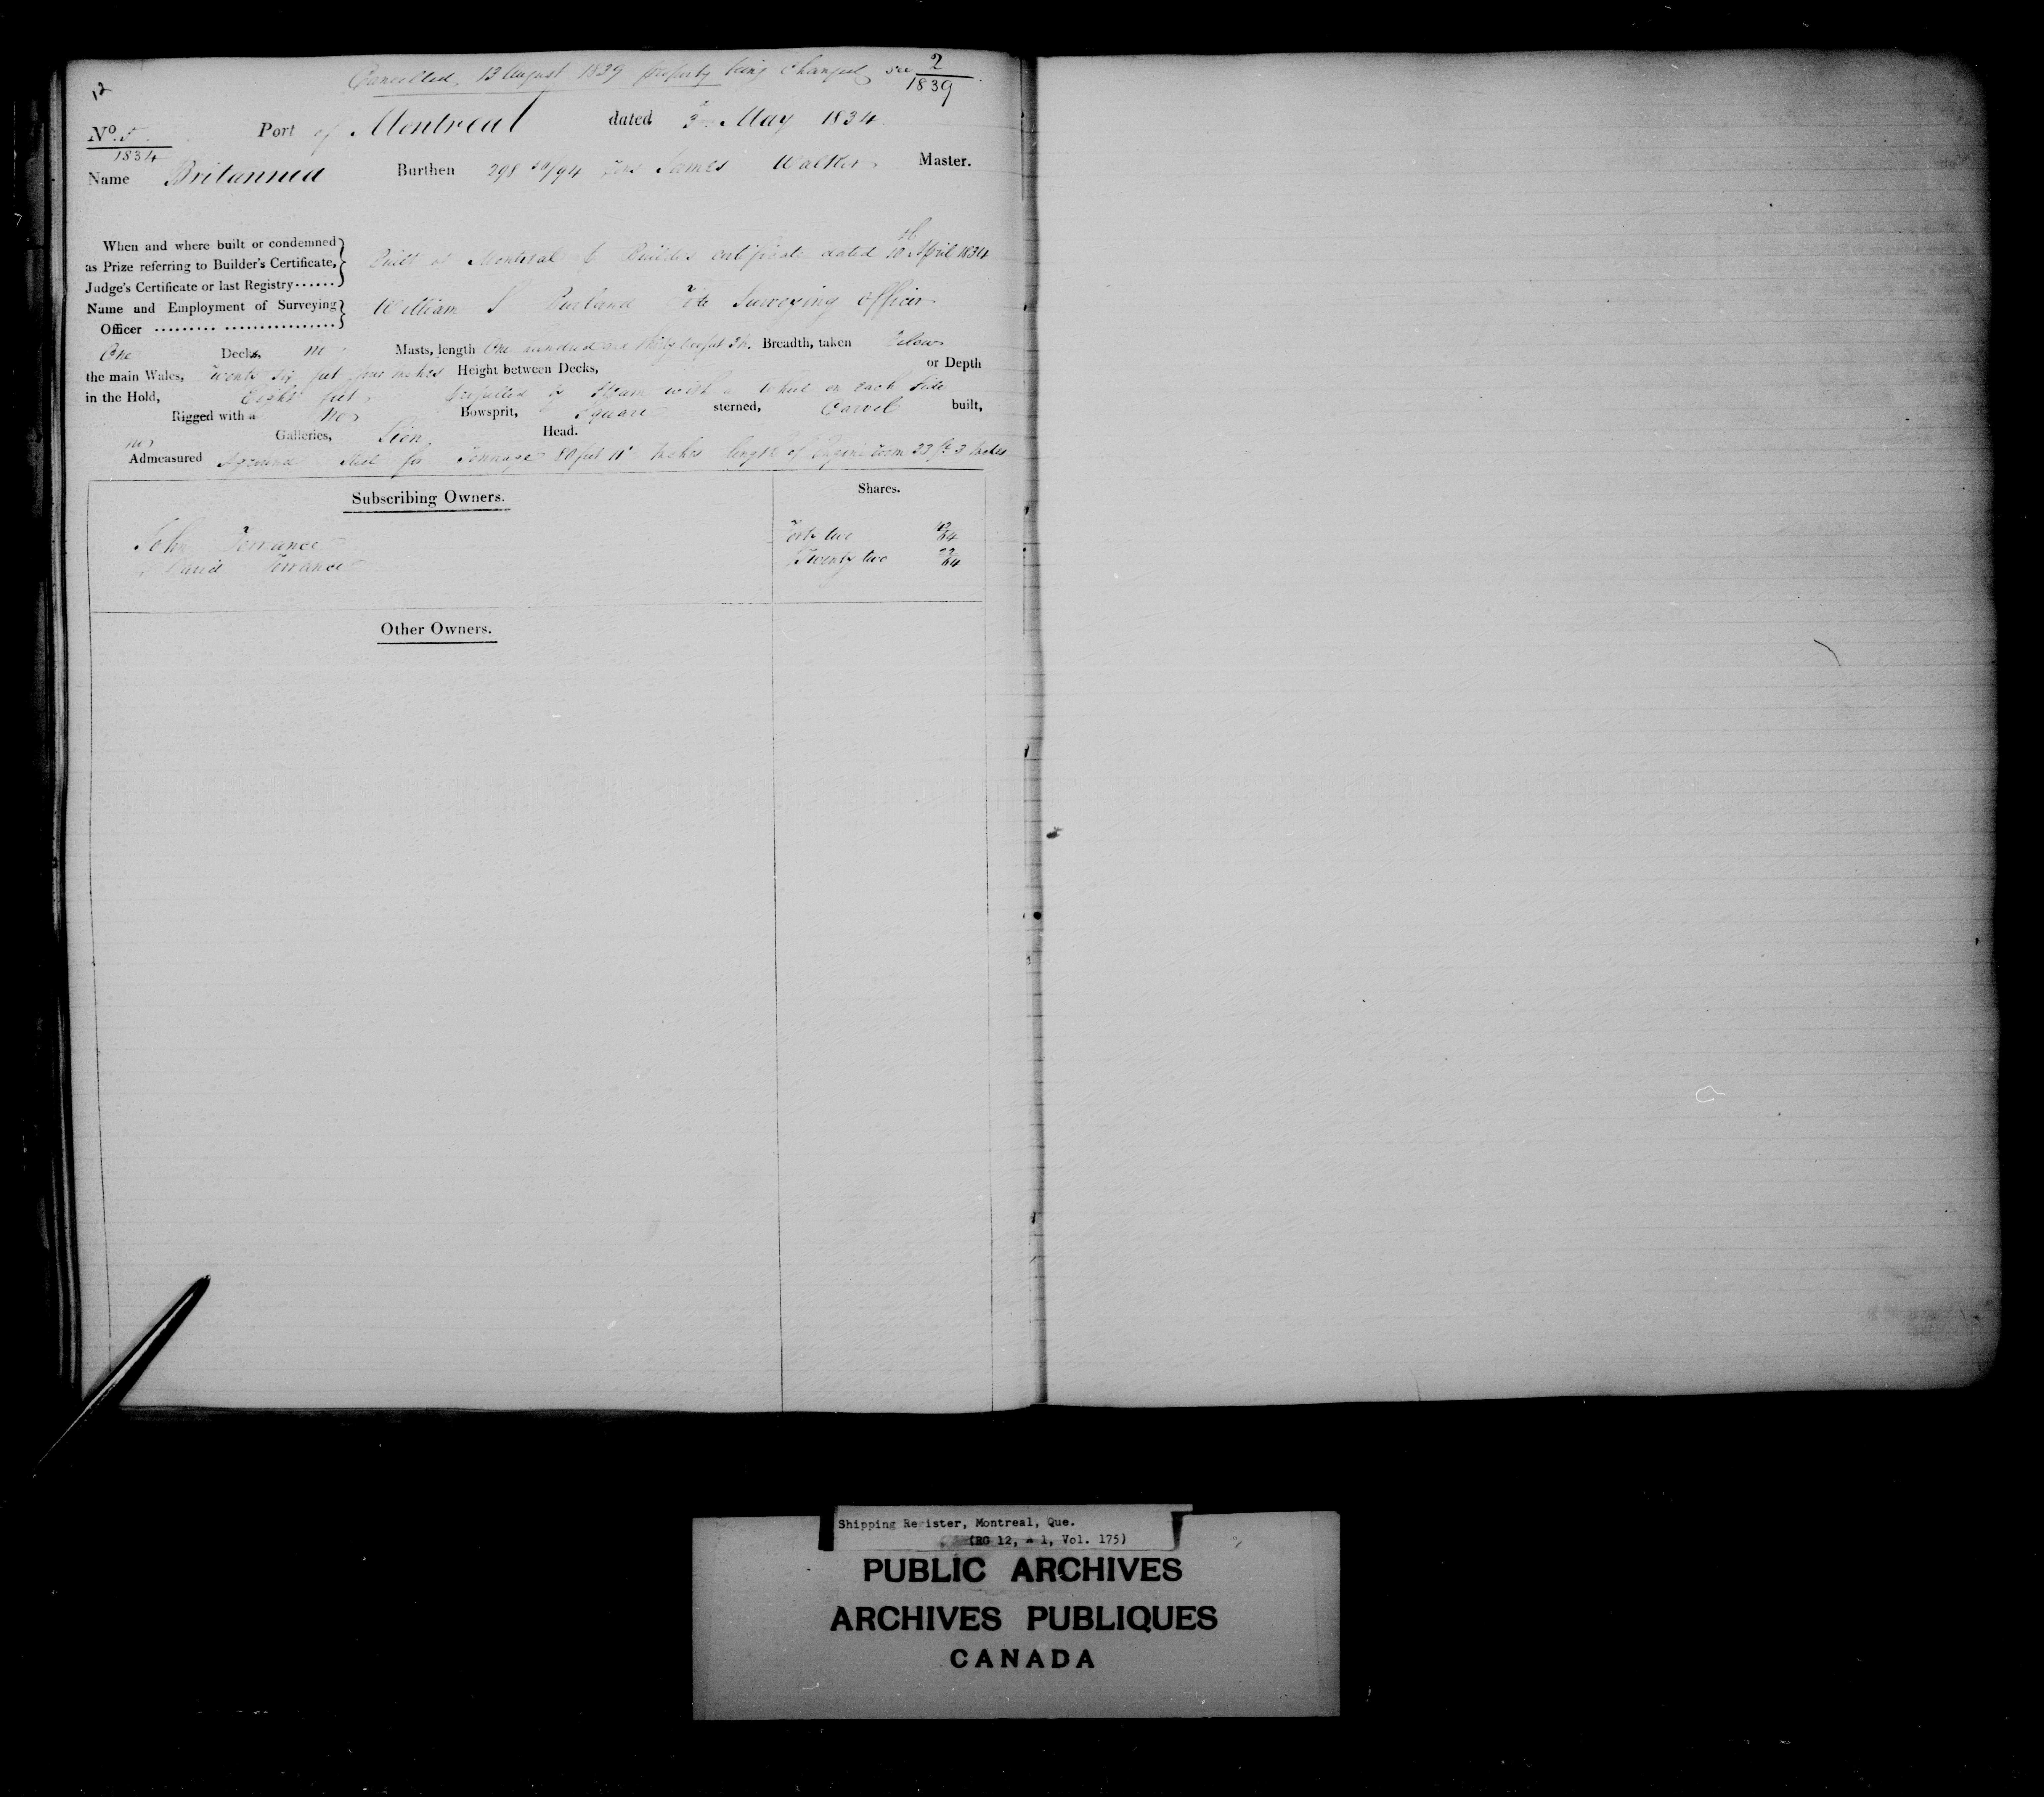 Cancelled 13 August 1839 property being changed see 2/1839
12
No. 5 / 1834 Port of Montreal dated 3 May 1834
Name Britannia Burthen 298 /94 Tons James Walker Master.
When and where built or condemned as Prize referring to Builder's Certificate, Judge's Certificate or last Registry...... Built at Montreal Builders certificate dated 10th April 1834
Name and Employment of Surveying Officer ......... ................ William Surveying Officer
One Decks, no Masts, length One hundred and thirty feet Breadth, taken below
the main Wales, Twenty six feet four inches Height between Decks, or Depth
in the Hold, Eight feet propelled by Steam with a wheel on each side
Rigged with a no Bowsprit, Square sterned, Carvel built,
no Galleries, Lion Head.
Admeasured Aground Keel for Tonnage 80 feet 11 inches length of Engine room 33 ft 3 inches
Subscribing Owners. Shares.
John Torrance Forty two 42/64
David Torrance Twenty two 22/64
Other Owners.
Shipping Register, Montreal, Que.
(RG 12, A 1, Vol. 175)
PUBLIC ARCHIVES
ARCHIVES PUBLIQUES
CANADA